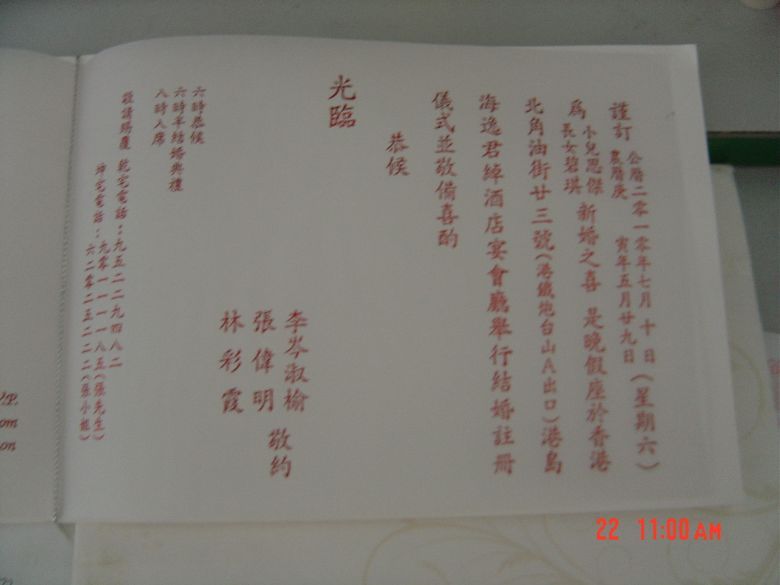 謹訂
公曆二零一零年七月十日(星期六)
農曆庚寅年五月廿九日
為
小兒恩傑
長女碧琪
新婚之喜 是晚假座於香港
北角油街廿三號(港鐵炮台山A出口)港島
海逸君綽酒店宴會廳舉行結婚註冊
儀式並敬備喜酌
恭候
光臨
李岑淑榆
張偉明
林彩霞
敬約
六時恭候
六時半結婚典禮
八時入席
敬請賜覆
乾宅電話:九五二二九四八二
坤宅電話:
九零一一一一八五(張先生)
六二零二五二二二(張小姐)
om
on
22 11:00AM